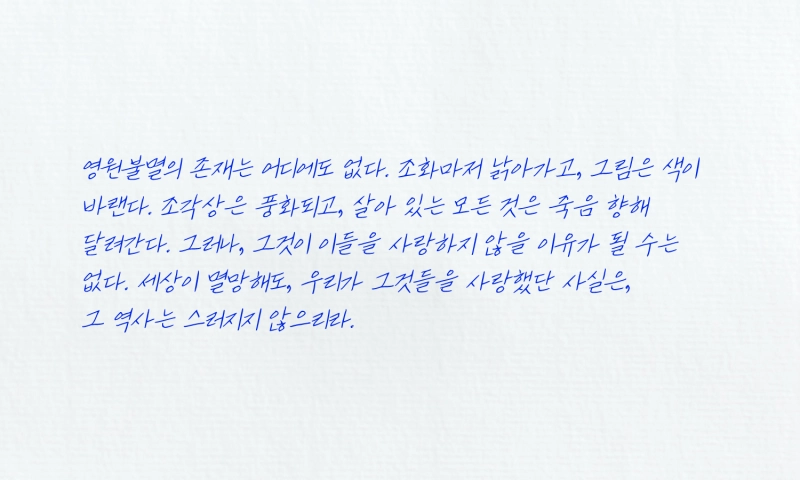 영원불멸의 존재는 어디에도 없다. 조화마저 낡아가고, 그림은 색이
바랜다. 조각상은 풍화되고, 살아 있는 모든 것은 죽음 향해
달려간다. 그러나, 그것이 이들을 사랑하지 않을 이유가 될 수는
없다. 세상이 멸망해도, 우리가 그것들을 사랑했단 사실은,
그 역사는 스러지지 않으리라.